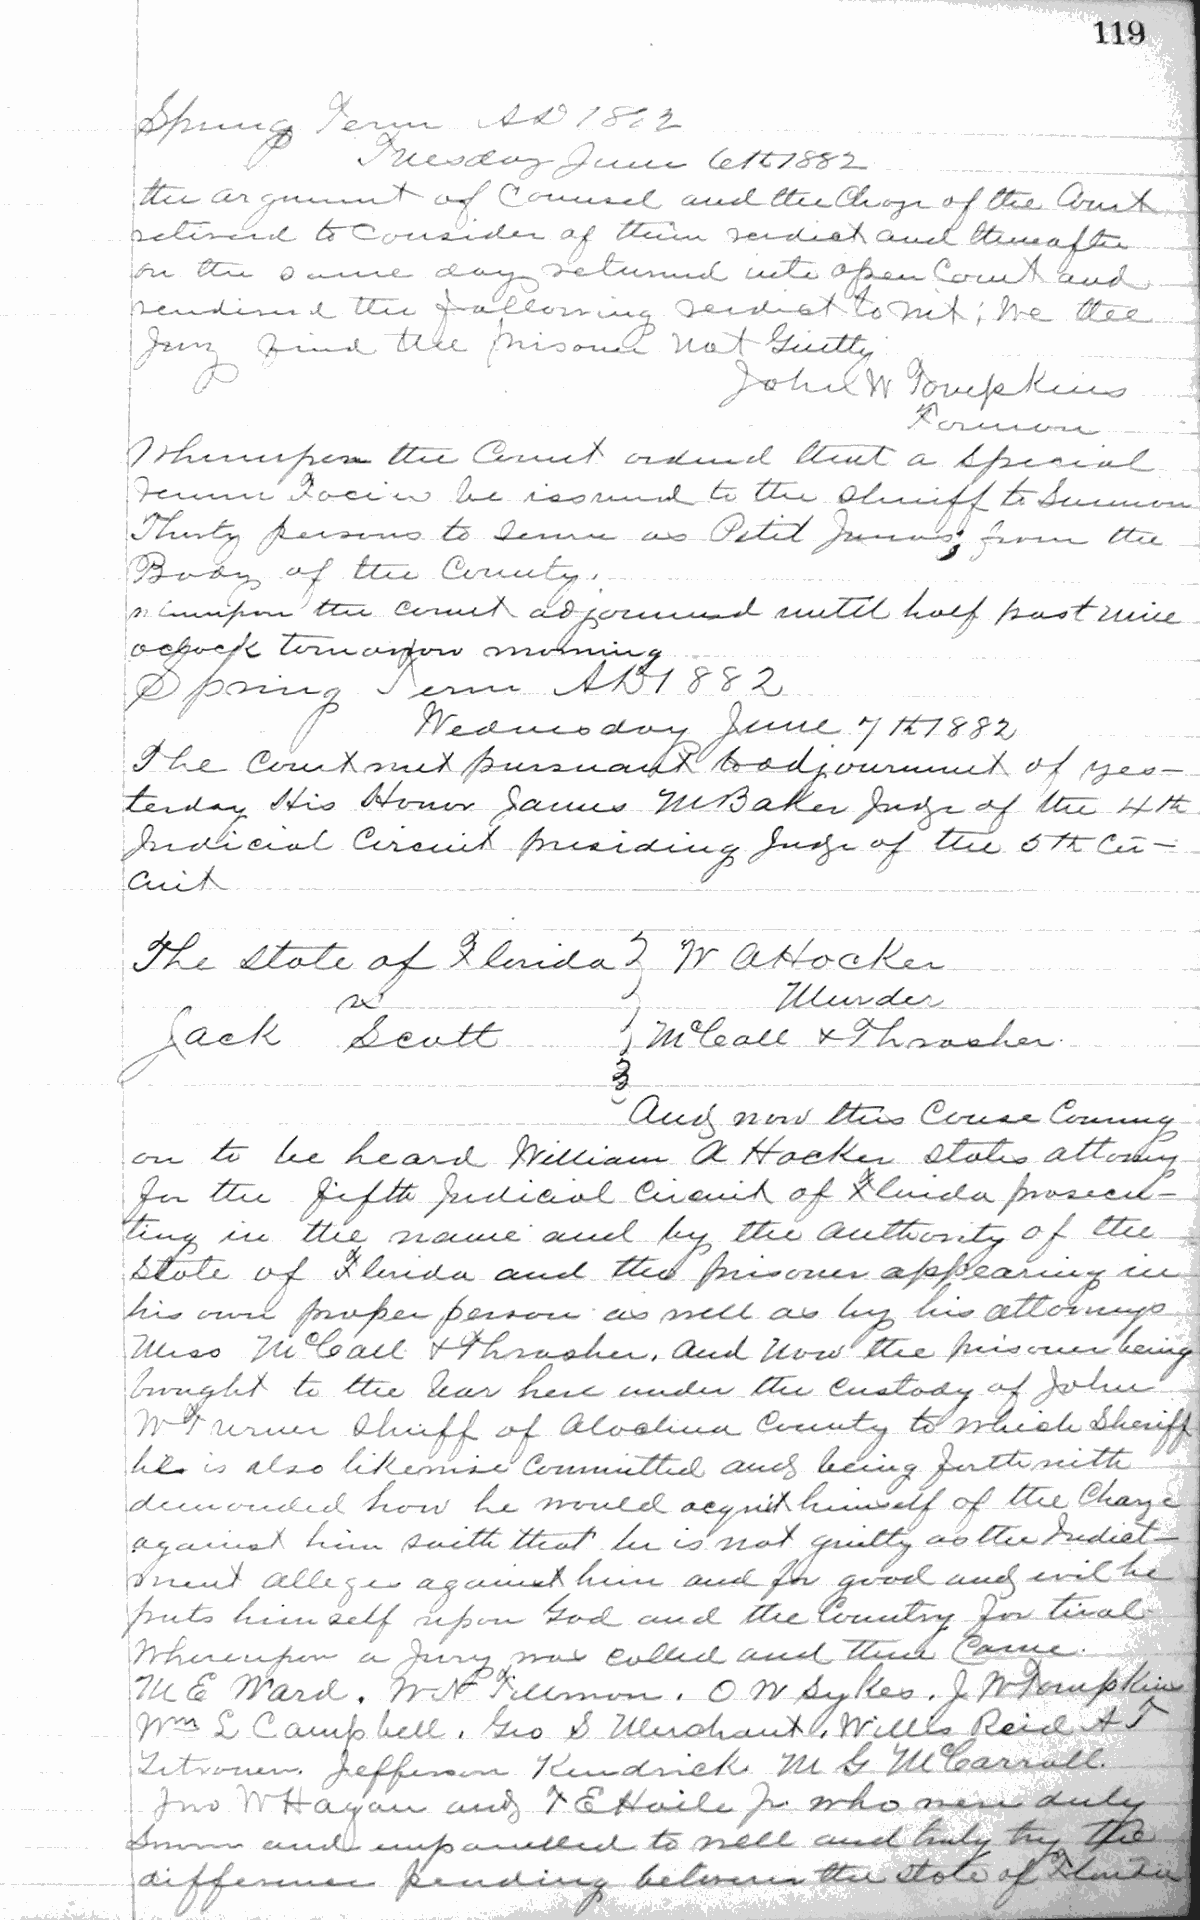 119
Spring Term AD 1882
Tuesday June 6th 1882
the argument of Counsel and the Charge of the Court
retired to Consider of their verdict and thereafter
on the same day returned into open Court and
rendered the following verdict to wit; We the
Jury find the prisoner Not Guilty
John W Tompkins
Forman
Whereupon the Court ordered that a Special
Venire Facias be issued to the Sheriff to Summon
Thirty persons to serve as Petit Jurors; from the
Body of the County.
the court adjourned until half past nine
oclock tomorrow morning
Spring Term AD 1882
Wednesday June 7th 1882
The Court met pursuant to adjournment of yes-
terday His Honor James M Baker Judge of the 4th
Judicial Circuit presiding Judge of the 5th Cir-
cuit
The State of Florida } W A Hocker
vs } Murder
Jack Scott } McCall & Thrasher.
And now this Cause Coming
on to be heard William A Hocker states attorney
for the fifth Judicial Circuit of Florida prosecu-
ting in the name and by the authority of the
State of Florida and the prisoner appearing in
his own proper person as well as by his attorneys
Mess McCall & Thrasher. and Now the prisoner being
brought to the bar here under the custody of John
W Turner Sheriff of Alachua County to which Sheriff
he is also likewise Committed and being forthwith
demanded how he would acquit himself of the Charge
against him saith that he is not guilty as the Indict-
ment alleges against him and for good and evil he
puts himself upon God and the Country for trial
Whereupon a Jury was called and there Came.
M E Ward. W N Tillmon. O W Sykes. J W Tompkins
Wm L Campbell. Geo S Merchant. Willis Reid A T
Jefferson Kendrick M G McCarroll.
Jno W Hagan and T E Haile Jr. who were duly
Sworn and empanelled to well and truly try the
difference pending between the State of Florida